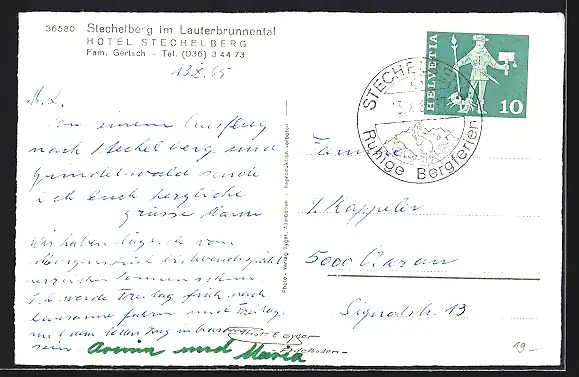 36580 Stechelberg im Lauterbrunnental
HOTEL STECHELBERG
Fam. Gertsch - Tel. (036) 3 44 73
13.X.65
M. L.
Von einem Ausflug
nach Stechelberg und
Grindelwald sende
ich Euch herzliche
grüsse Mann
Wir haben täglich vom
Morgenfrüh bis
werde Freitag früh nach
Lausanne fahren und Freitag
mit dem Zug in
sein.
Armin und Maria
Photo-Verlag Gyger, Adelboden - Reproduktion verboten
HELVETIA
10
STECHELBERG
Ruhige Bergferien
Familie
J. Kappeler
5000 Aarau
Signalstr. 13
E Gyger
Adelboden
19-